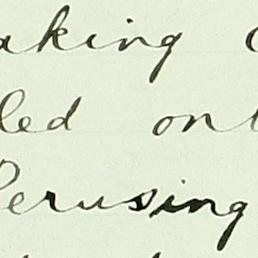 aking
led on
Perusing